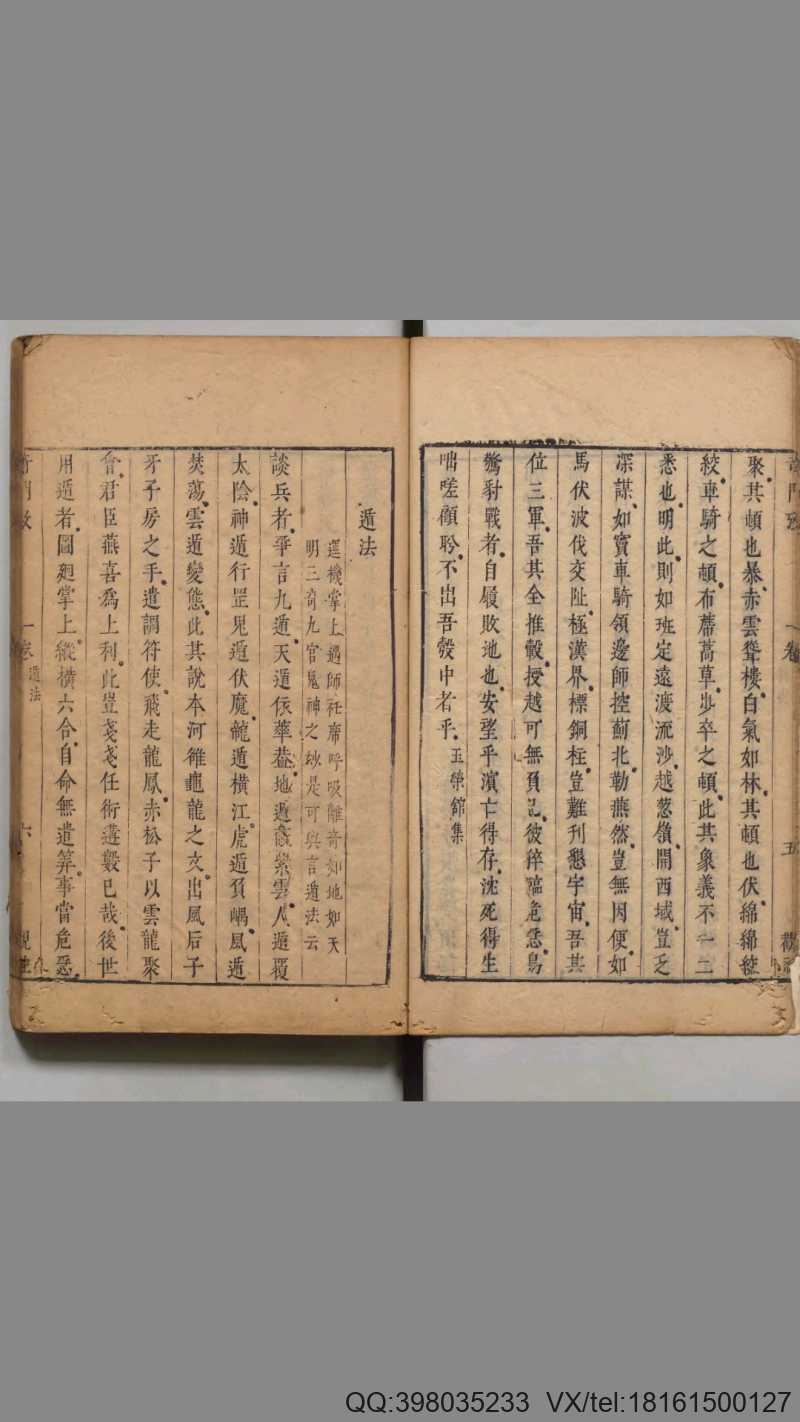 聚其頓也暴赤雲聳樓白氣如林其頓也伏綿綿
絞車騎之頓布蓆蒿草步卒之頓此其象義不一二
悉也明此則如班定遠渡流沙越葱嶺開西域豈乏
深謀如竇車騎領邊師控薊北勒燕然豈無因便如
馬伏波伐交阯極漢界標銅柱豈難刊懇宇宙吾其
位三軍吾其全推轂授越可無負彼猝臨危惡鳥
驚豺戰者自履敗地也安望乎濱亡得存沈死得生
咄嗟顧聆不出吾彀中者乎玉榮館集
一卷 五
遁法
運機掌上遇師社席呼吸離奇如地如天
明三奇九宮鬼神之是可與言遁法云
談兵者爭言九遁天遁依華葢地遁紫雲人遁覆
太陰神遁行罡鬼遁伏魔龍遁橫江虎遁負嵎風遁
焚蕩雲遁變態此其說本河雒龜龍之文出風后子
牙子房之手遣調符使飛走龍鳳赤松子以雲龍聚
會君臣燕喜爲上利此豈戔戔任術遘毀已哉後世
用遁者圖廻掌上縱橫六合自命無遺筭事當危惡
一卷 遁法 六
QQ:398035233 VX/tel:18161500127